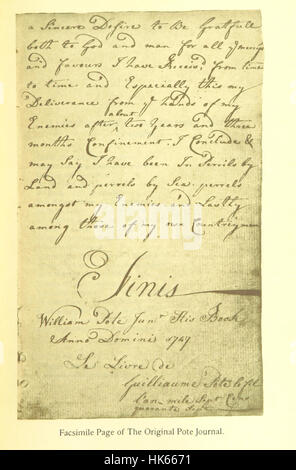 a Sincere Desire to Be Gratfull
both to God and man for all yͤ mercies
and favours I have Received from time
to time and Especially this my
Deliverance from yͤ hands of my
Enemies after about two Years and three
months Confinement. I Conclude &
may Say I have been In Perrils by
Land and perrels by Sea perrels
amongst my Enemies and Lastly
among those of my own Countreymen
Finis
William Pote Junr His Book
Anno Domini 1747
Le Livre de
Guilliaume Pote le fils
L'an mile Sept Cens
quarante Sept
Facsimile Page of The Original Pote Journal.
alamy
alamy
Image ID: HK6671
www.alamy.com